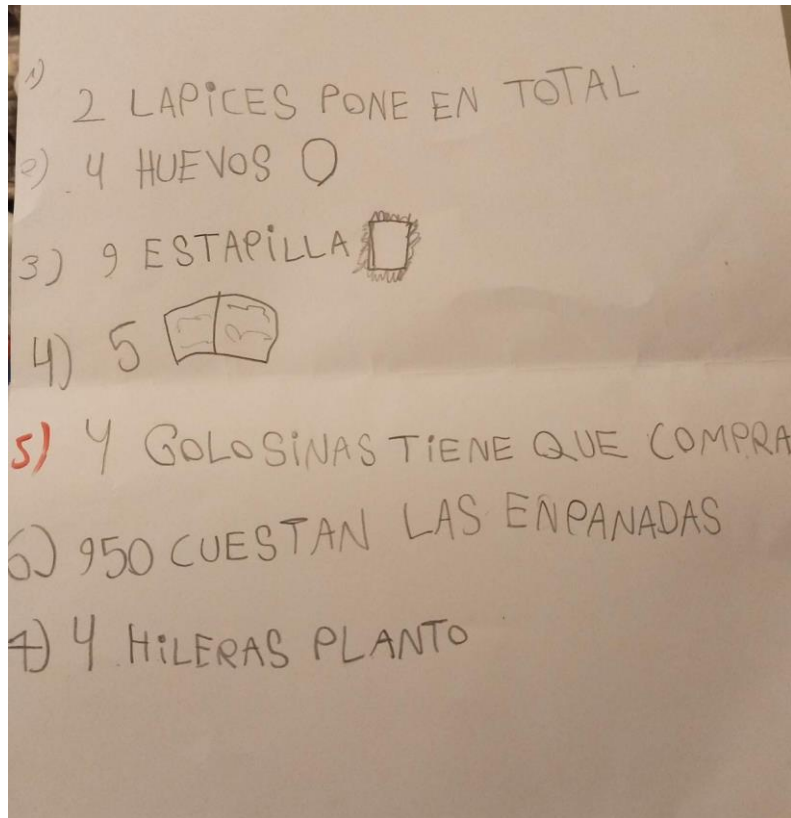 1)
2 LAPiCES PONE EN TOTAL
2) 4 HUEVOS
3) 9 ESTAPiLLA
4) 5
5) 4 GOLOSiNAS TiENE QUE COMPRA
6) 950 CUESTAN LAS ENPANADAS
7) 4 HiLERAS PLANTO